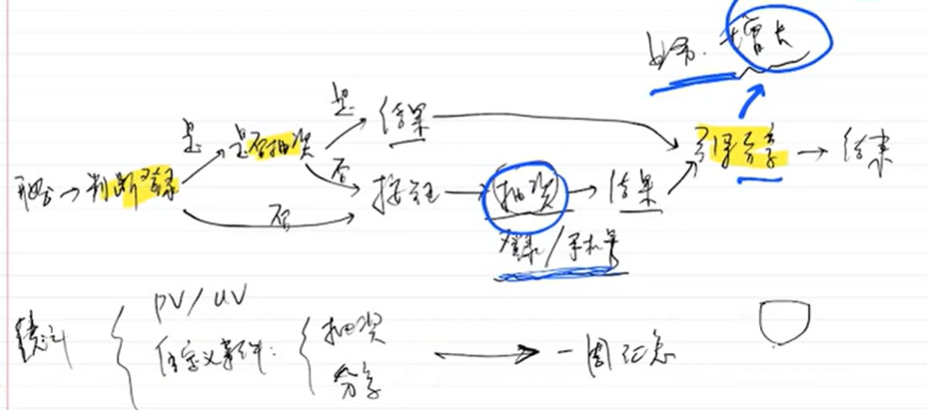 业务. 增长
是 结果
是 是否抽奖 引导分享 → 结束
判断登录 否 按钮 → 抽奖 → 结果
否
登录/手机号
统计 PV/UV
自定义事件: 抽奖 一周汇总
分享